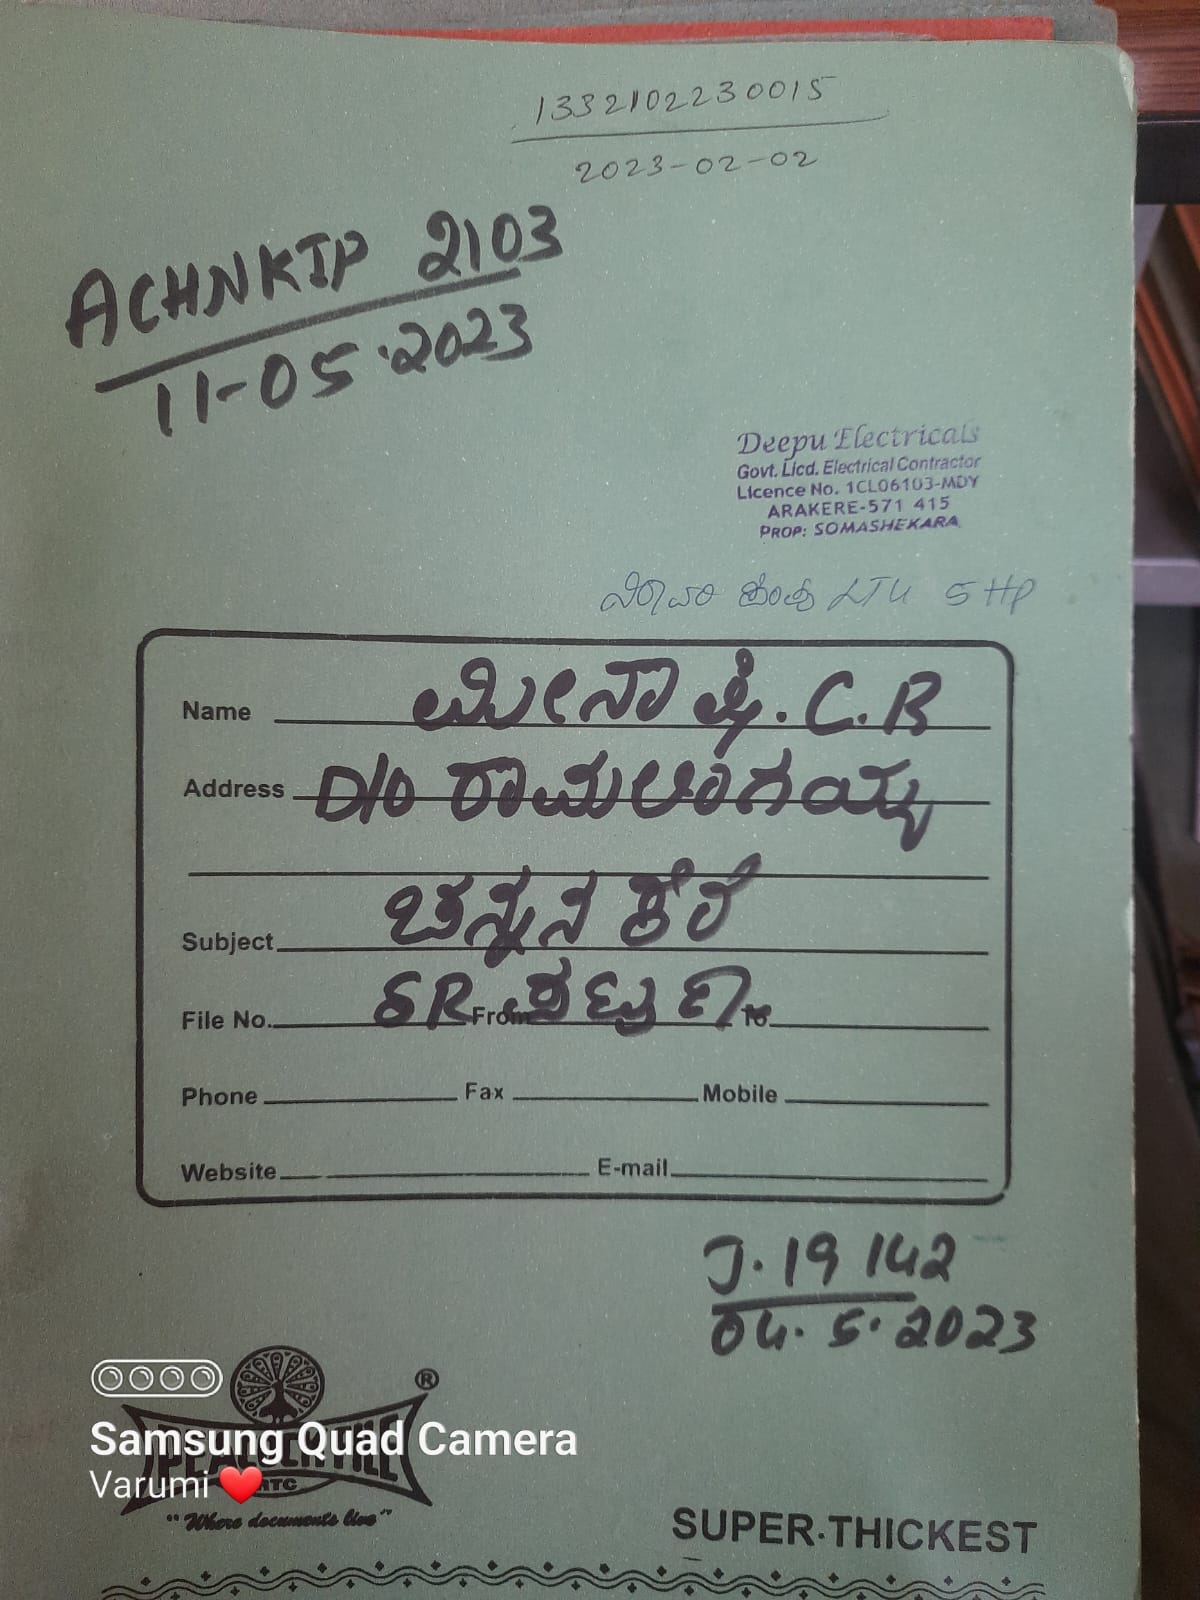 1332102230015
2023-02-02
ACHNKIP 2103
11-05.2023
Deepu Electricals
Govt. Licd. Electrical Contractor
Licence No. 1CL06103-MDY
ARAKERE-571 415
PROP: SOMASHEKARA
LTU 5 HP
Name ಮೀನಾಕ್ಷಿ. C.R
Address D/o ರಾಮಲಿಂಗಯ್ಯ
Subject ಚನ್ನನಕೆರೆ
File No. SR ಪಟ್ಟಣ From to
Phone Fax Mobile
Website E-mail
J. 19142
04. 5. 2023
PEACOCK FILE ®
RTC
"Where documents live"
SUPER·THICKEST
Samsung Quad Camera
Varumi ❤️